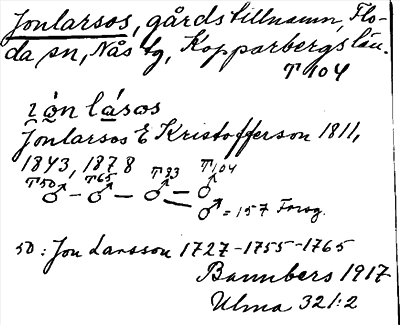 Jonlarsos, gårdstillnamn, Flo-
da sn, Nås tg, Kopparbergs län.
T 104
ı̯ón lásos
Jonlarsos E Kristofferson 1811,
1843, 1878
T50 T65 T93 T104
♂ – ♂ – ♂ – ♂
♂ = 157 Forsg.
50: Jon Larsson 1727-1755-1765
Bannbers 1917
Ulma 321:2